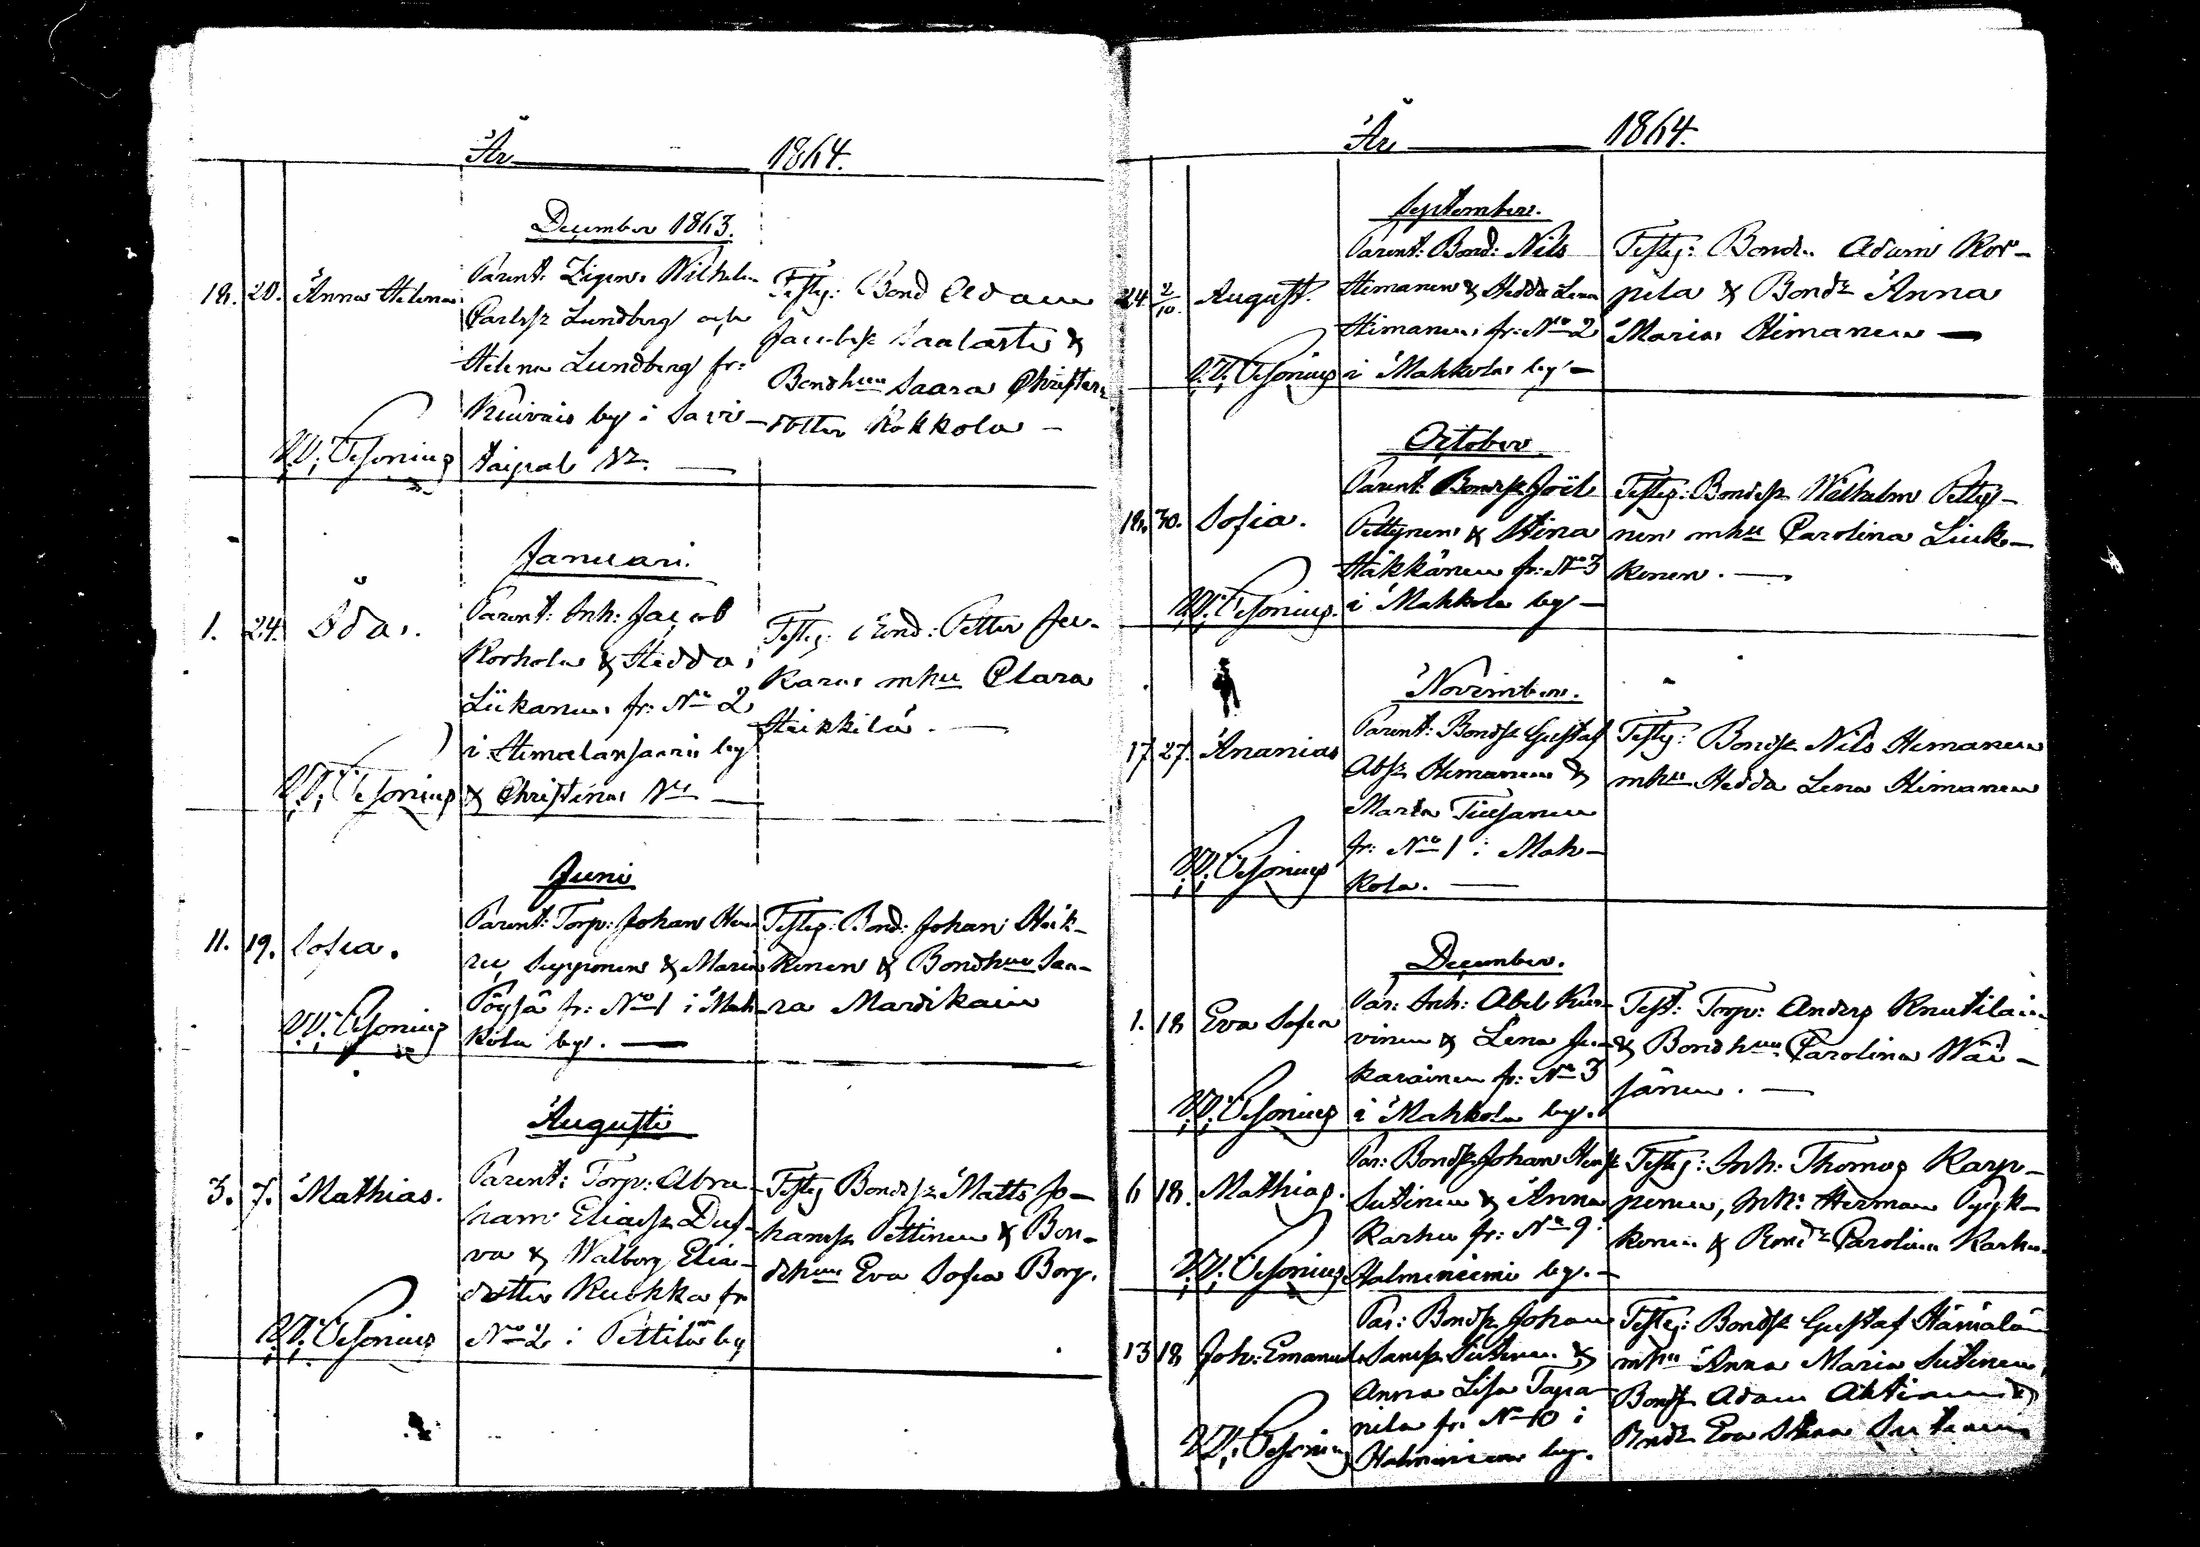 År 1864.
December 1863.
18. 20. Anna Helena
Parent: Wilhelm
Carlss Lundberg och
Helena Lundberg fr:
Kuivais by i Savi-
taipale
Testes: Bond Adam
Jacobss Saalasti &
Bondhuu Saara Christers
dotter Kokkola -
V.V. Cesonius
Januari.
1. 24. Ida.
Parent: Inh: Jacob
Korhola & Hedda
Liikanen fr: No 2
i Himalansaari by
& Christina
Testes: Bond: Petter Ju-
karus mhu Clara
Heikkilä. —
V.V. Cesonius
Juni
11. 19. Sofia.
Parent: Torp: Johan Hen
ric Sepponen & Maria
Pöysä fr: No 1 i Mah-
kola by. —
Testes: Bond: Johan Häk-
kinen & Bondhuu Saa-
ra Mardikain
V.V. Cesonius
Augusti
3. 7. Mathias.
Parent: Torp: Abra-
ham Eliass Duf-
va & Walborg Elia-
dotter Kuokka fr
No 2 i Pettilä by
Testes Bondess Matts Jo-
hanss Pettinen & Bon-
dehuu Eva Sofia Borg.
V.V. Cesonius
År 1864.
September.
24 2/10. August.
Parent: Bond: Nils
Himanen & Hedda Lena
Himanen fr: No 2
i Mahkola by —
Testes: Bond: Adam Kor-
pela & Bondr Anna
Maria Himanen —
V.V. Cesonius
October
18. 30. Sofia.
Parent: Bondess Joël
Pettynen & Stina
Häkkänen fr: No 3
i Mahkola by —
Testes: Bondess Wilhelm Petty-
nen mhu Carolina Liuk-
konen. —
V.V. Cesonius.
November.
17 27. Ananias
Parent: Bondss Gustaf
Abss Himanen &
Maria Tiusanen
fr: No 1 i Mah-
kola. —
Testes: Bondss Nils Himanen
mhu Hedda Lena Himanen
V.V. Cesonius
December.
1. 18 Eva Sofia
Par: Inh: Abel Kur-
vinen & Lena Ju-
karainen fr: No 3
i Mahkola by.
Test: Torp: Anders Knutilain
& Bondhuu Carolina Wäi-
sänen. —
V.V. Cesonius
6 18. Mathias.
Par: Bondss Johan Henss
Sutinen & Anna
Karhu fr: No 9 i
Halmeniemi by. —
Testes: Inh: Thomas Karp-
pinen, Inh: Herman Pyyk-
könen & Bondr Carolina Karhu
V.V. Cesonius
13 18 Joh: Emanuel
Par: Bondss Johan
Samss Sutinen &
Anna Lisa Tapa-
nila fr: No 10 i
Halmeniemi by.
Testes: Bondss Gustaf Hämälä
mhu Anna Maria Sutinen,
Bondss Adam Ahtiainen &
Bondr Eva Stina Sutinen
V.V. Cesonius